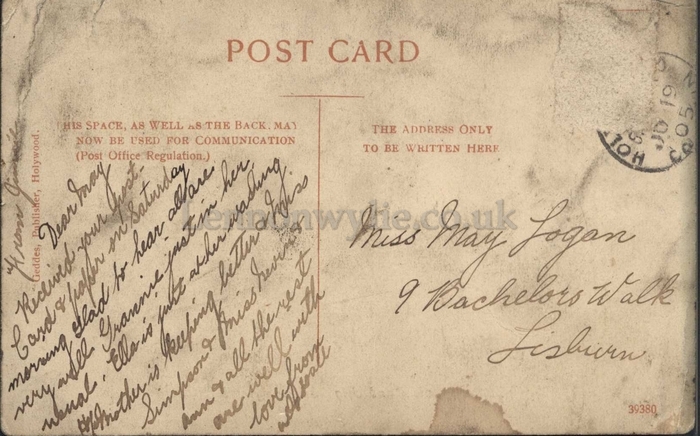 POST CARD
THIS SPACE, AS WELL AS THE BACK, MAY
NOW BE USED FOR COMMUNICATION
(Post Office Regulation.)
THE ADDRESS ONLY
TO BE WRITTEN HERE
Geddes, Publisher, Holywood.
From
Dear May
Received your
Card & paper on Saturday
morning Glad to hear all are
very well. Grannie just in her
usual. Ella is just as her reading
Mother is keeping better & Miss
Simpson & Miss
ann & all the rest
are well with
love from
Miss May Logan
9 Bachelors Walk
Lisburn
HOLY
JU 19
05
39380
Lennonwylie.co.uk